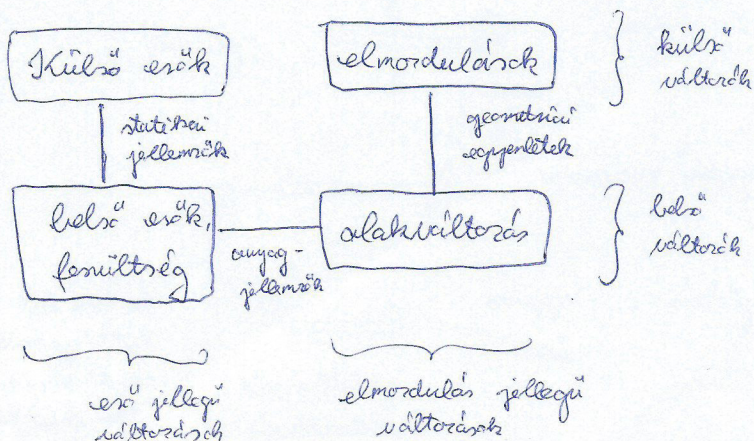 Külső erők
elmozdulások
külső
változók
statikai
jellemzők
geometriai
egyenletek
belső erők,
feszültség
anyag-
jellemzők
alakváltozás
belső
változók
erő jellegű
változások
elmozdulás jellegű
változások